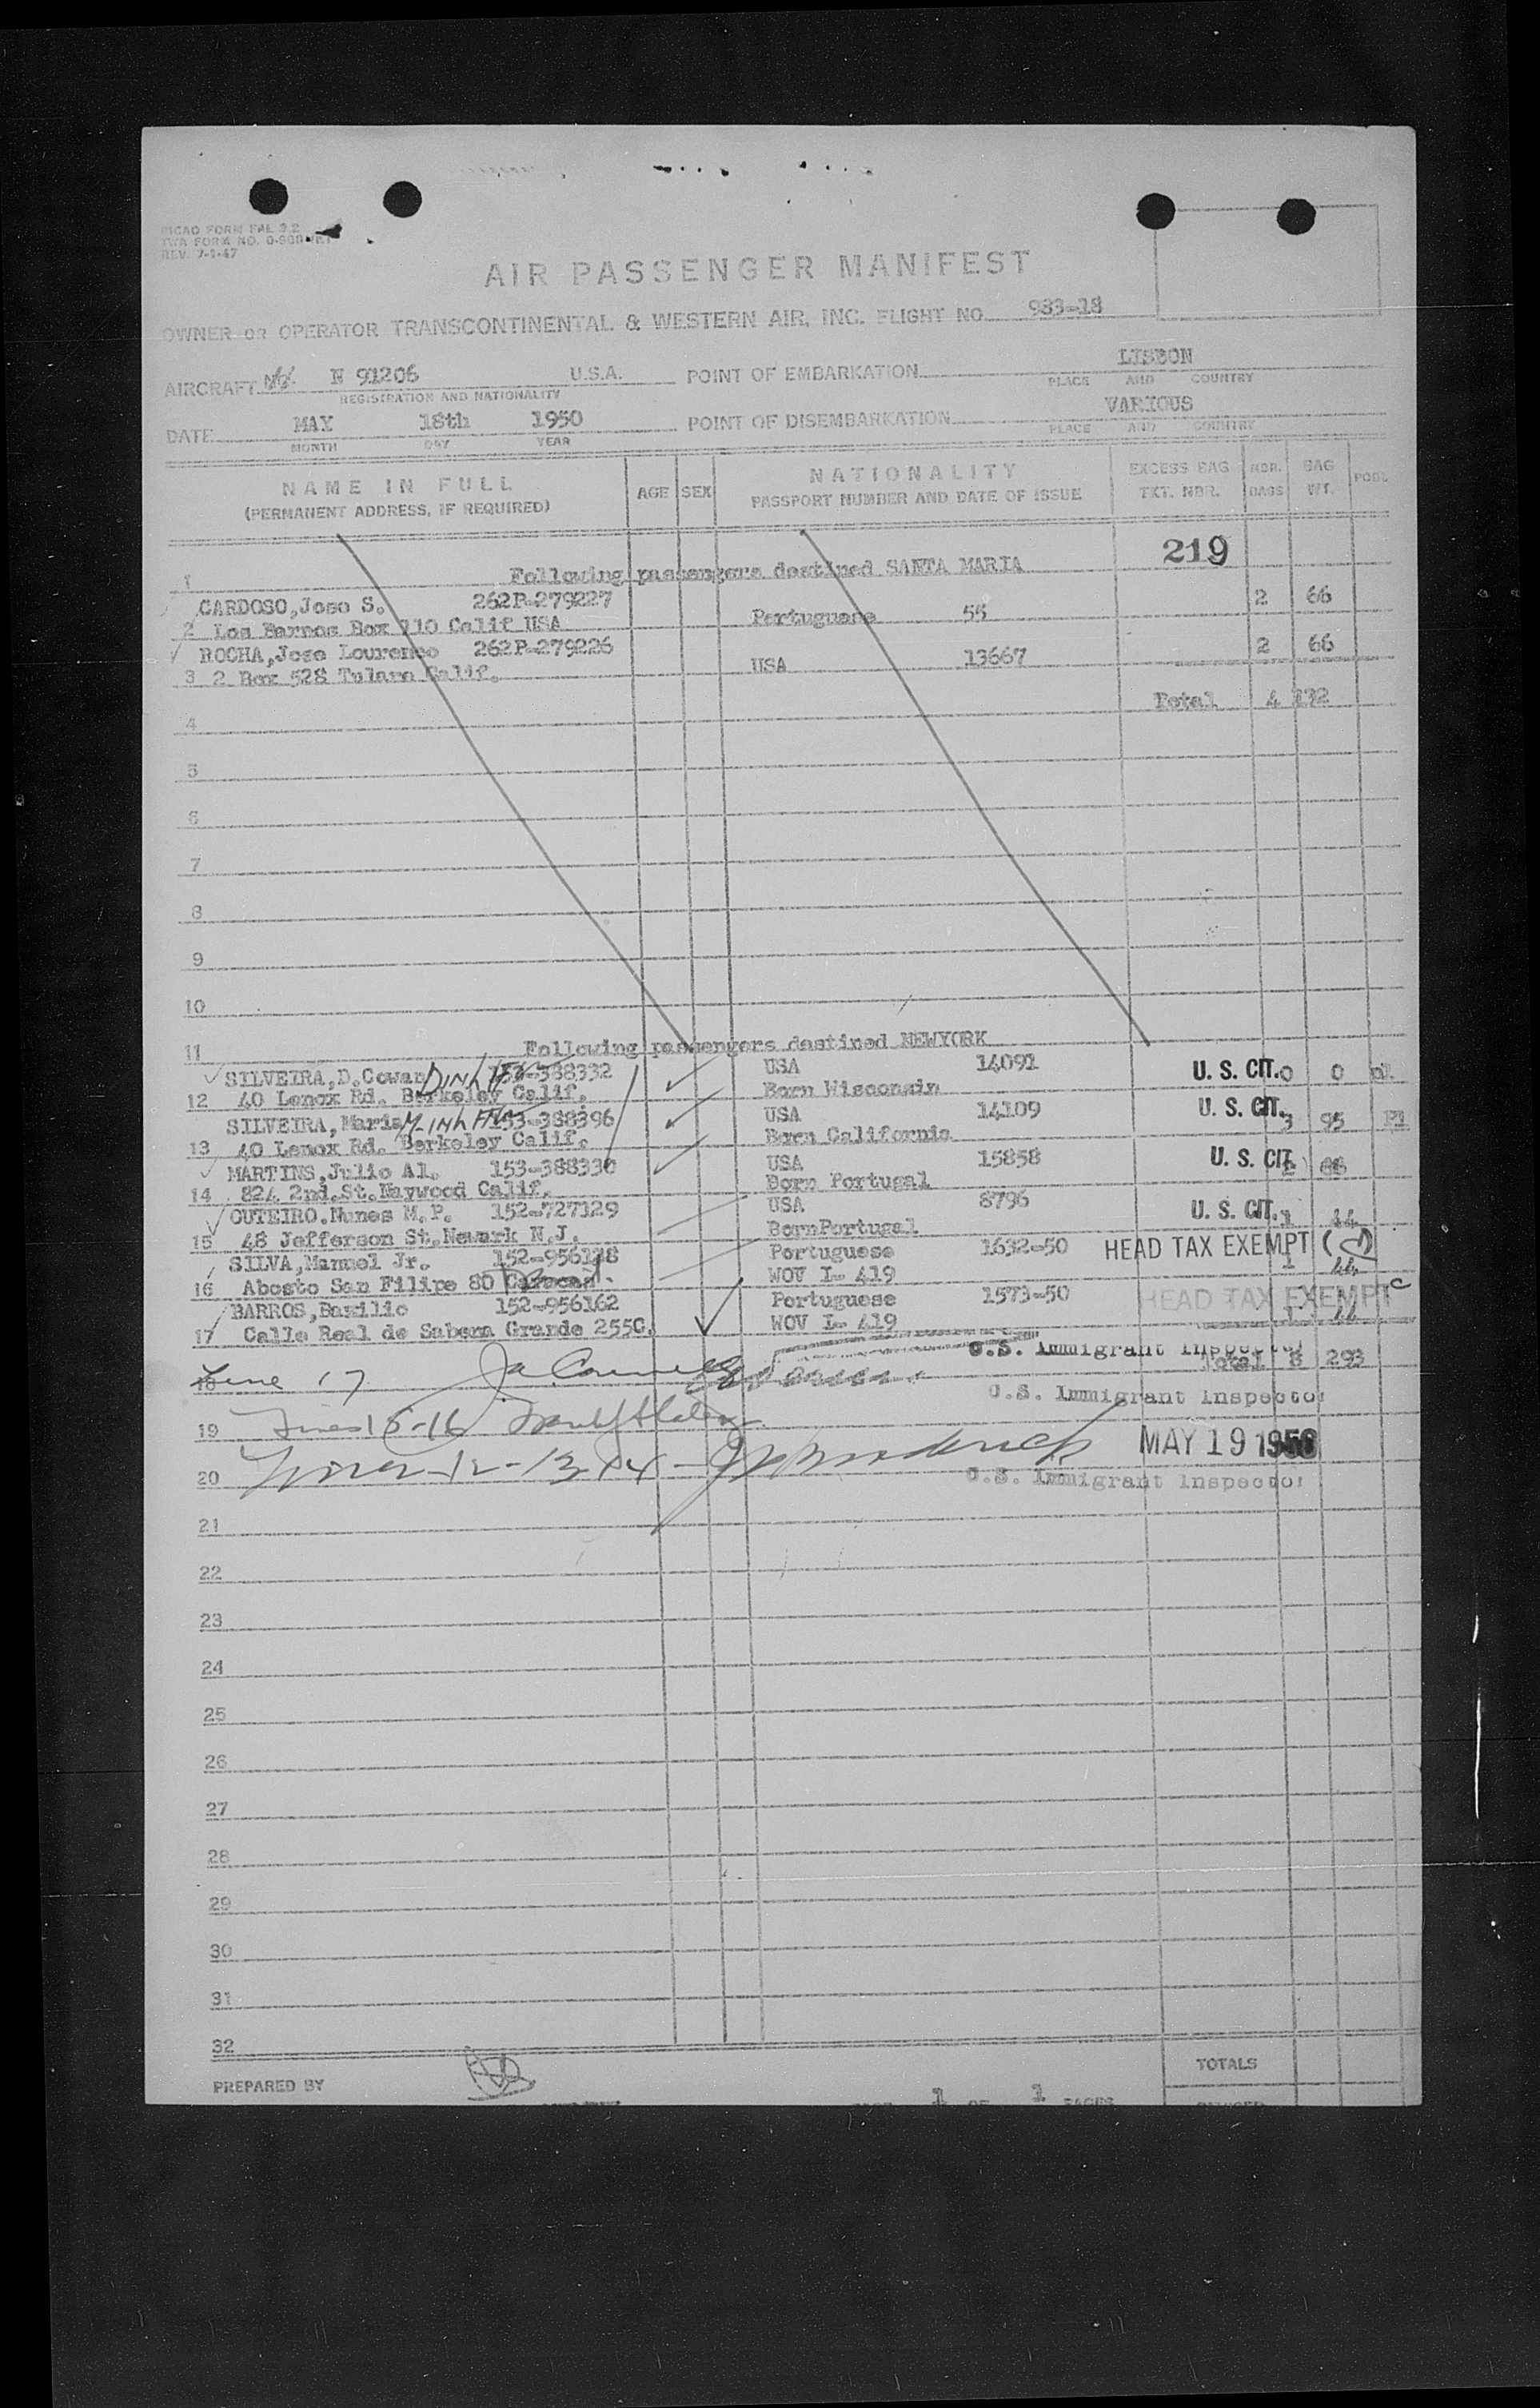 REV. 7-1-47
AIR PASSENGER MANIFEST
OWNER OR OPERATOR TRANSCONTINENTAL & WESTERN AIR, INC. FLIGHT NO. 983-18
AIRCRAFT N 91206 U.S.A. POINT OF EMBARKATION LISBON
REGISTRATION AND NATIONALITY PLACE AND COUNTRY
DATE MAY 18th 1950 POINT OF DISEMBARKATION VARIOUS
MONTH DAY YEAR PLACE AND COUNTRY
NAME IN FULL AGE SEX NATIONALITY EXCESS BAG NBR. BAG
(PERMANENT ADDRESS, IF REQUIRED) PASSPORT NUMBER AND DATE OF ISSUE TKT. NBR. BAGS WT.
219
1 Following passengers destined SANTA MARIA
CARDOSO, Joao S. 262P-279227 Portuguese 55 2 66
2 Los Barnos Box 110 Calif USA
ROCHA, Jose Lourenco 262P-279226 USA 13667 2 66
3 2 Box 528 Tulare Calif.
Total 4 132
4
5
6
7
8
9
10
11 Following passengers destined NEWYORK
SILVEIRA, D. Cowan 153-388332 USA 14091 U. S. CIT. 0 0
12 40 Lenox Rd. Berkeley Calif. Born Wisconsin
SILVEIRA, Maria 153-388396 USA 14109 U. S. CIT. 3 95
13 40 Lenox Rd. Berkeley Calif. Born California
MARTINS, Julio Al. 153-388330 USA 15858 U. S. CIT.
14 824 2nd. St. Maywood Calif. Born Portugal
OUTEIRO, Nunes M. P. 152-727129 USA 8796 U. S. CIT. 1 44
15 48 Jefferson St, Newark N.J. BornPortugal
SILVA, Manuel Jr. 152-956148 Portuguese 1632-50 HEAD TAX EXEMPT 1 44
16 Abosto San Filipe 80 Caracas WOV I- 419
BARROS, Basilio 152-956162 Portuguese 1573-50 HEAD TAX EXEMPT C 1 44
17 Calle Real de Sabena Grande 255C. WOV I- 419
U.S. Immigrant Inspector
Total 8 293
18 Line 17
U.S. Immigrant Inspector
19 Lines 15-16
MAY 19 1950
20 Lines 12-13-14
U.S. Immigrant Inspector
21
22
23
24
25
26
27
28
29
30
31
32
TOTALS
PREPARED BY
1 OF 1 PAGES